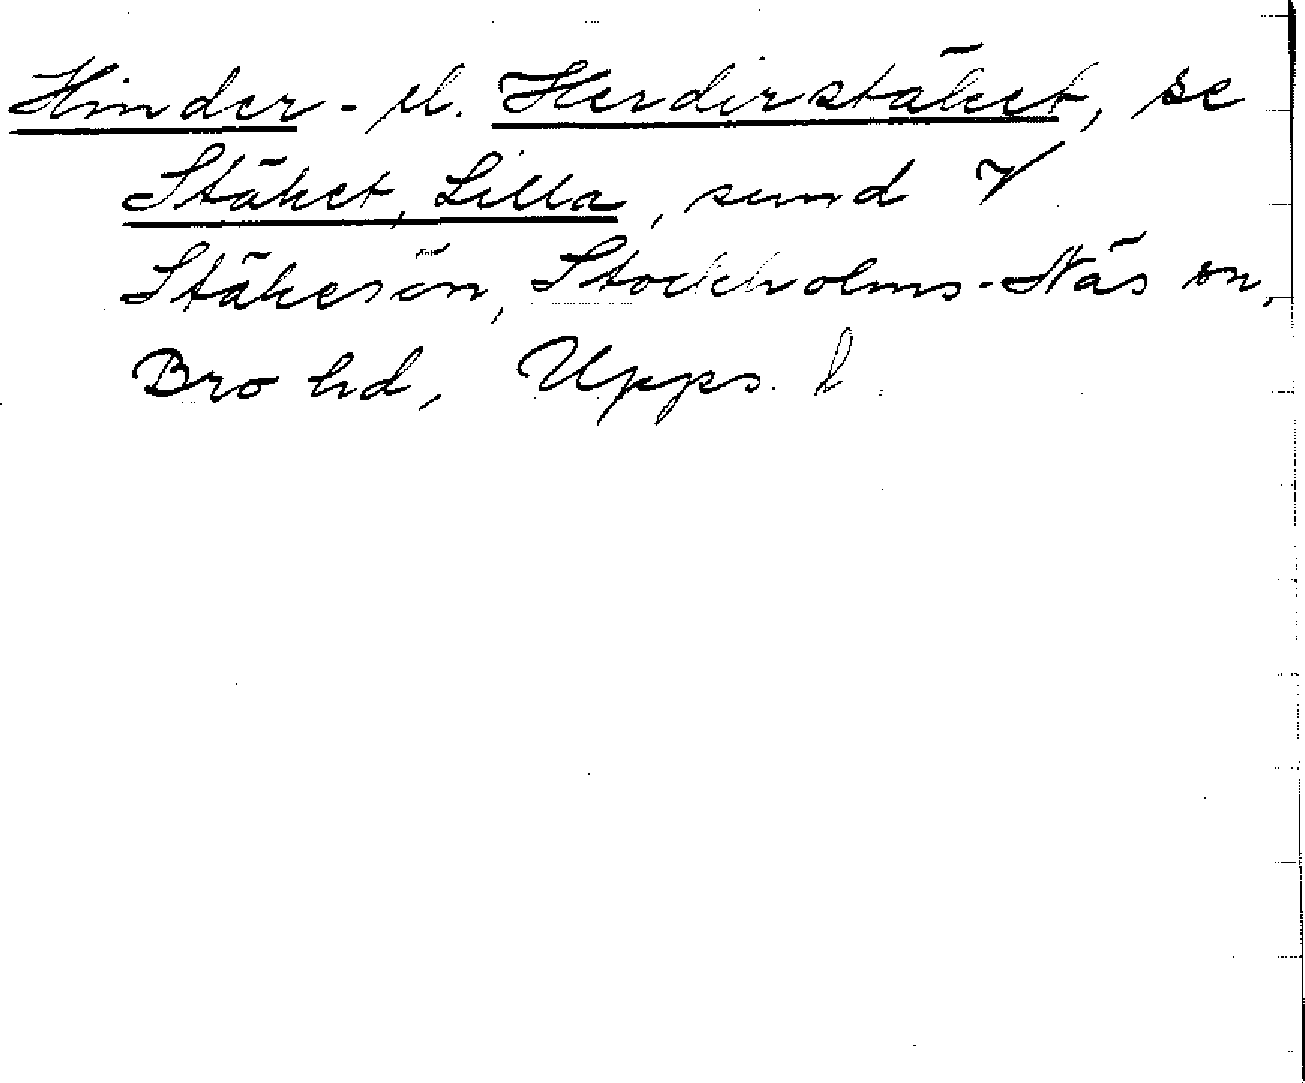 Hinder- el. Herdirstäket, se
Stäket, Lilla, sund V
Stäkesön, Stockholms-Näs sn,
Bro hd, Upps. l.